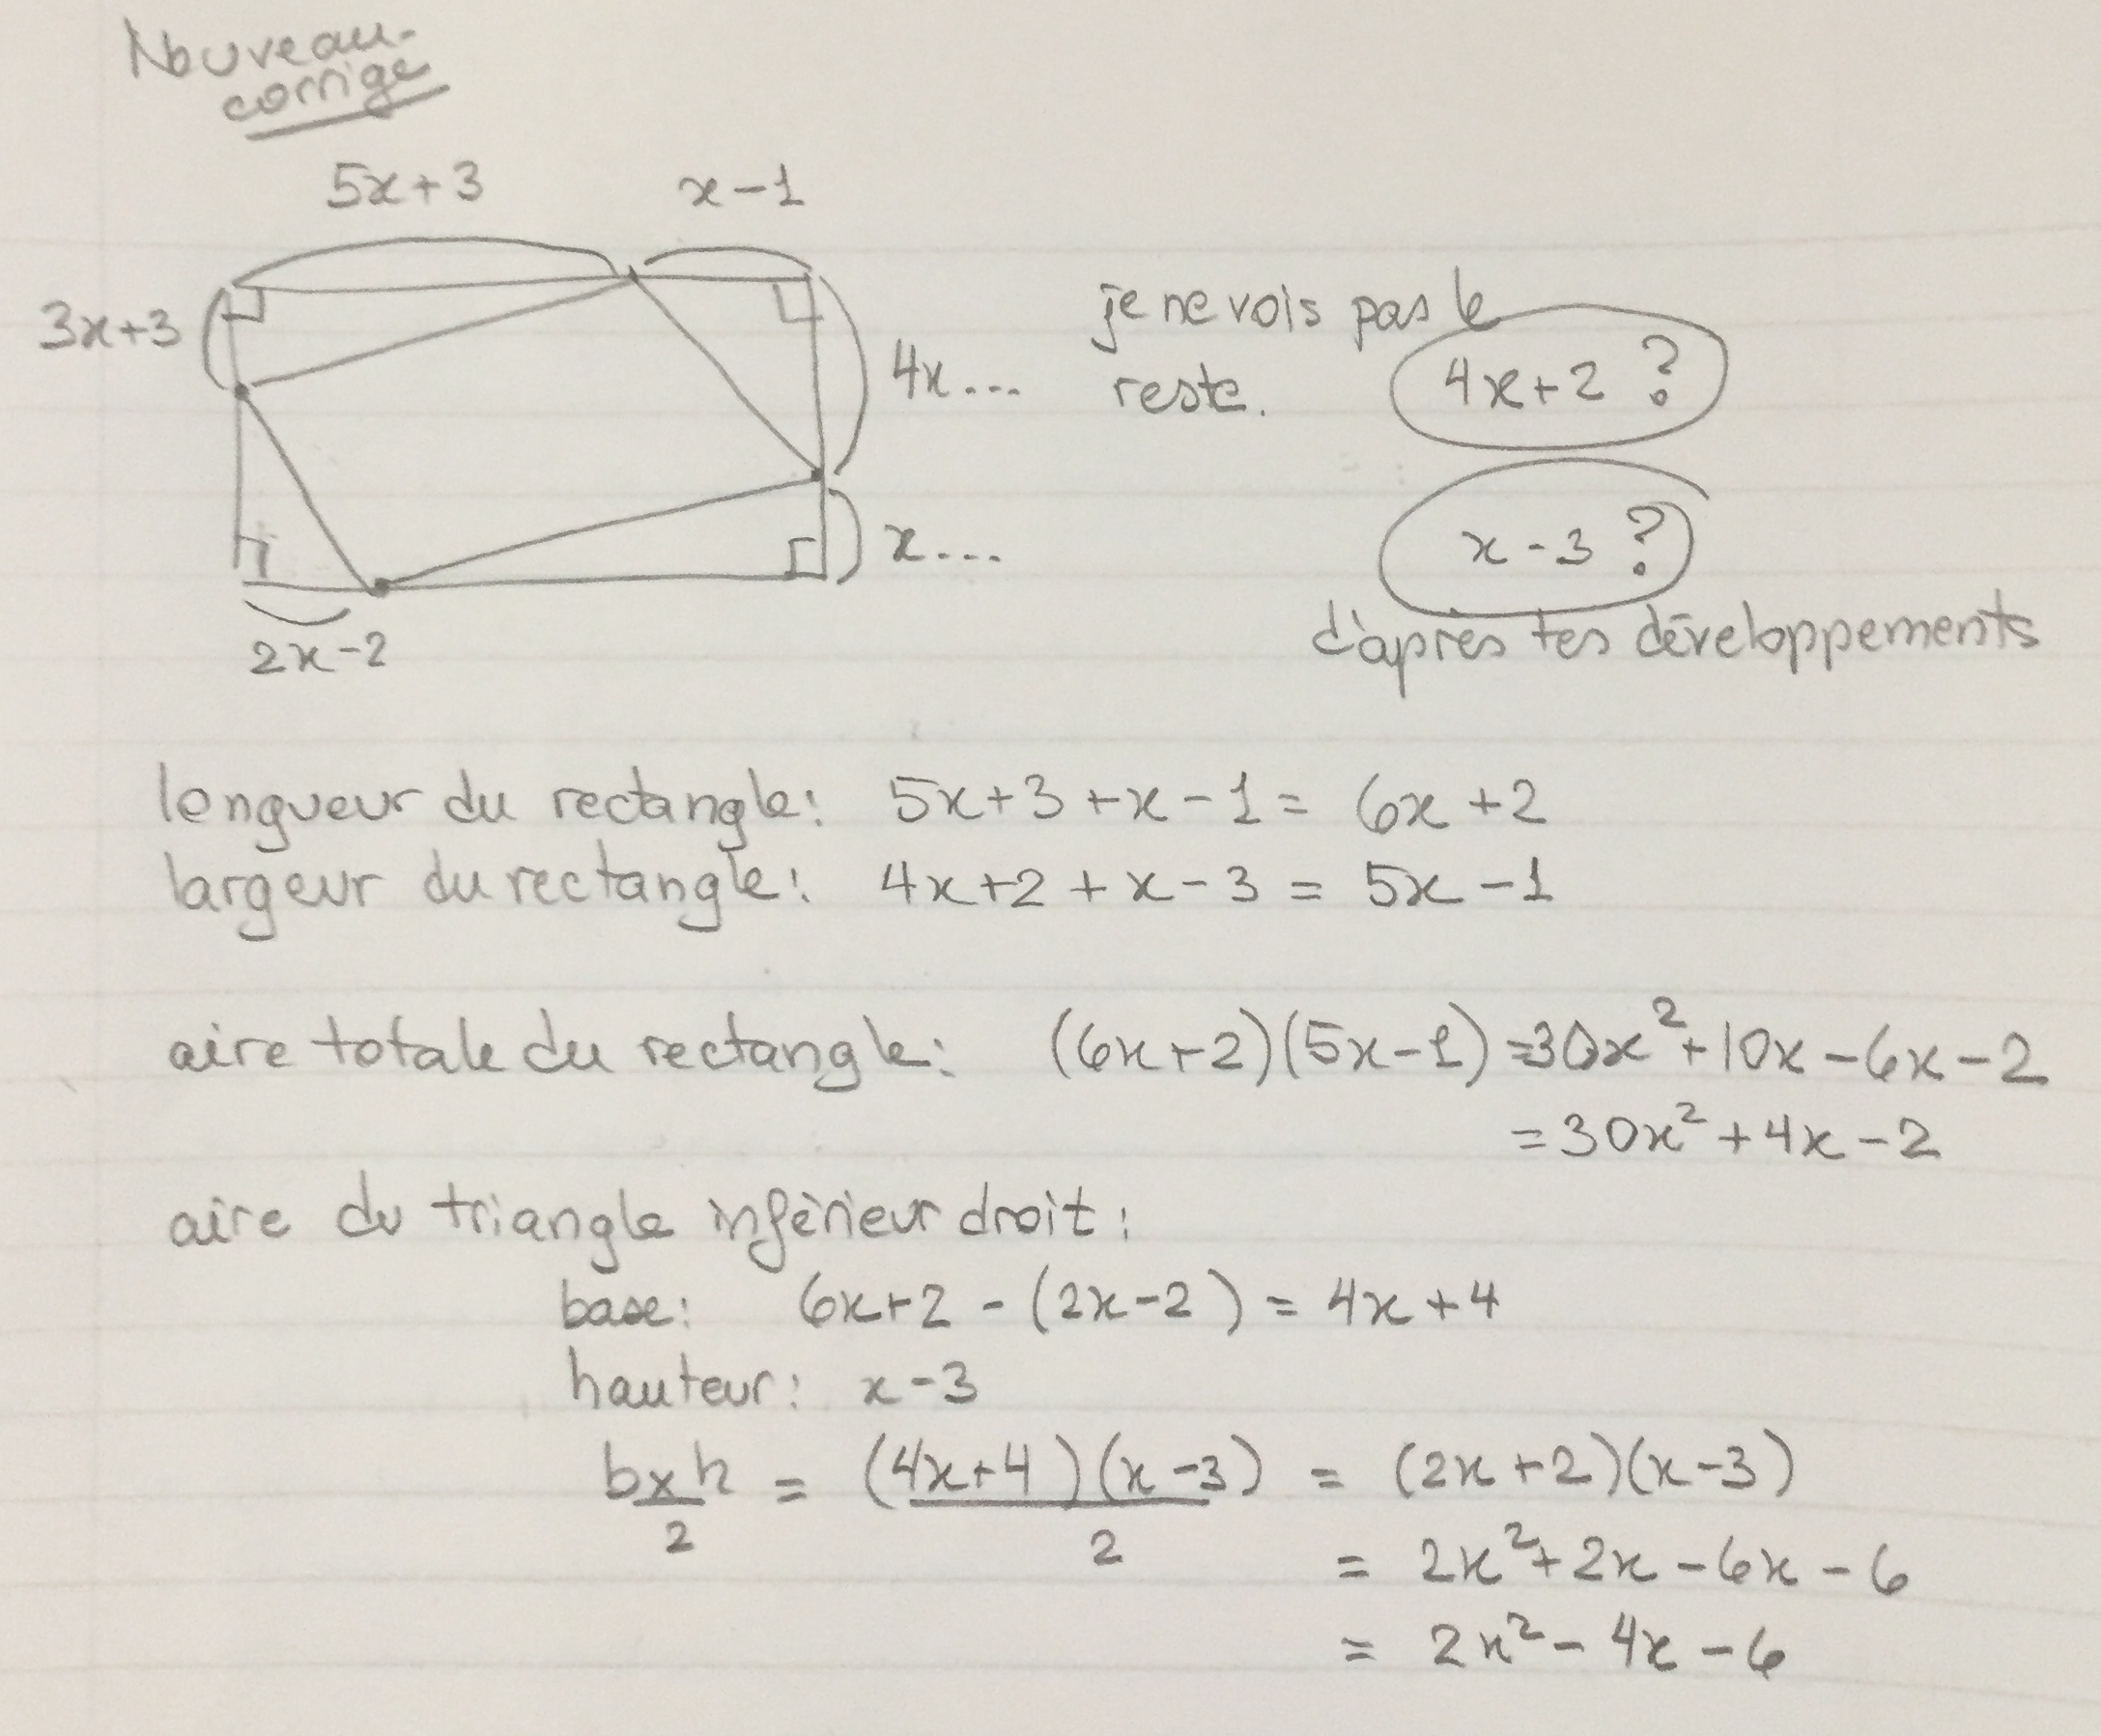 Nouveau-
corrigé
5x+3 x-1
3x+3
4x... je ne vois pas le
reste. 4x+2 ?
x... x-3 ?
2x-2 d'après tes développements
longueur du rectangle: 5x+3+x-1= 6x+2
largeur du rectangle: 4x+2+x-3 = 5x-1
aire totale du rectangle: (6x+2)(5x-1)=30x²+10x-6x-2
=30x²+4x-2
aire du triangle inférieur droit:
base: 6x+2-(2x-2) = 4x+4
hauteur: x-3
bxh/2 = (4x+4)(x-3)/2 = (2x+2)(x-3)
= 2x²+2x-6x-6
= 2x²-4x-6